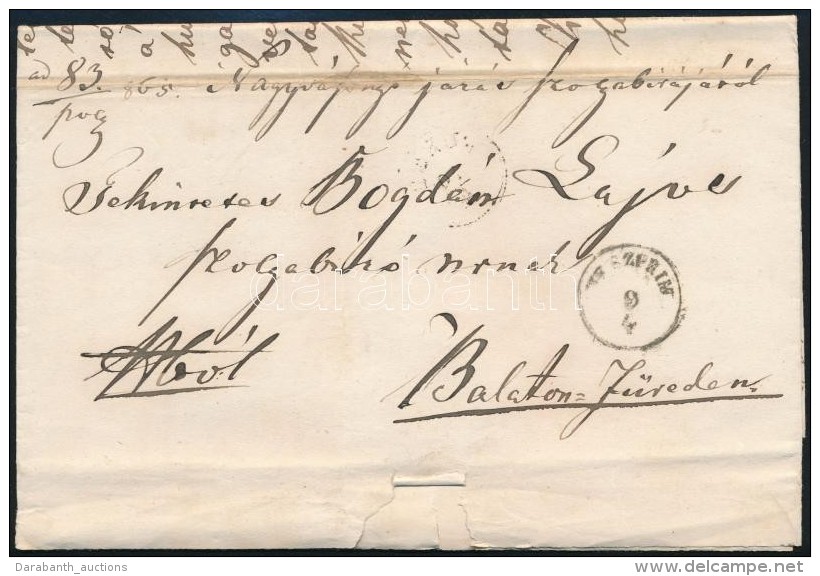 ad 83/865. Nagyvázsonyi járás szolgabirájáról
polg
Tekintetes Bogdán Lajos
szolgabiró urnak
VESZPRIM
9
4
Balaton=Füreden.
darabanth
Darabanth_auctions
www.delcampe.net